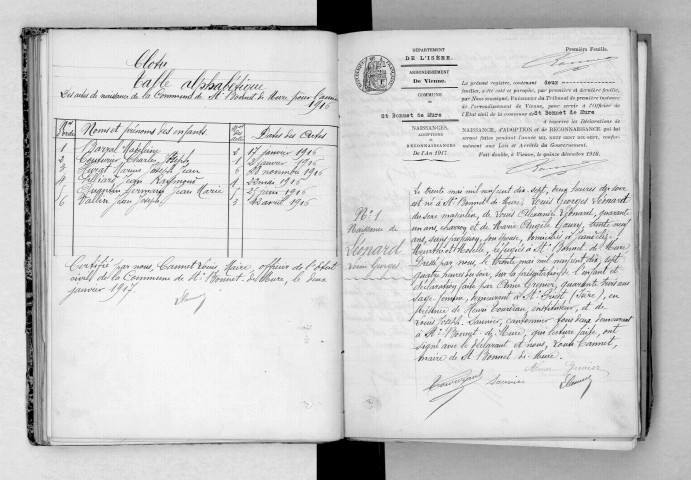 Clotu
Table alphabétique
Des actes de naissance de la Commune de St Bonnet de Mure pour l'année
1916
Nos d'ordre Noms et prénoms des enfants Nos des actes Dates des Actes
1 Barral 2 17 janvier 1916
2 Couturier Charles Joseph 1 2 janvier 1916
3 Marius Joseph Jean 6 22 novembre 1916
4 Jean Raymond 4 22 mai 1916
5 Germain Jean Marie 5 25 juin 1916
6 Vallin Jean Joseph 3 12 avril 1916
Certifié par nous, Cannet Louis, Maire, officier de l'État
civil de la Commune de St Bonnet de Mure, le deux
janvier 1917
DÉPARTEMENT
DE L'ISÈRE.
ARRONDISSEMENT
De Vienne.
COMMUNE
de
St Bonnet de Mure
NAISSANCES,
ADOPTIONS
et
RECONNAISSANCES
De l'An 1917.
Première Feuille.
Le présent registre, contenant deux
feuilles, a été coté et paraphé, par première et dernière feuille,
par Nous soussigné, Président du Tribunal de première instance
de l'arrondissement de Vienne, pour servir à l'Officier de
l'État civil de la commune de St Bonnet de Mure
à inscrire les Déclarations de
NAISSANCE, D'ADOPTION et de RECONNAISSANCE qui lui
seront faites pendant l'année mil neuf cent dix-sept, conformément
aux Lois et Arrêtés du Gouvernement.
Fait double, à Vienne, le quinze décembre 1916.
No 1
Naissance de
Léonard
Louis Georges
Le trente mai mil neuf cent dix-sept, deux heures du soir
est né à St Bonnet de Mure, Louis Georges Léonard
du sexe masculin, de Louis Alexandre Léonard, quarante
un ans, et de Marie Angèle
ans, sans profession, son épouse, domiciliés à
réfugiés à St Bonnet de Mure.
Dressé par nous, le trente mai mil neuf cent dix-sept
quatre heures du soir, sur la présentation de l'enfant et
déclaration faite par Anne Grenier, quarante trois ans
sage-femme, demeurant à St Priest (Isère), en
présence de Henri instituteur, et de
Louis Joseph Saunier, cantonnier tous deux demeurant
à St Bonnet de Mure, qui lecture faite, ont
signé avec le déclarant et nous, Louis Cannet,
maire de St Bonnet de Mure.
Anne Grenier
Saunier